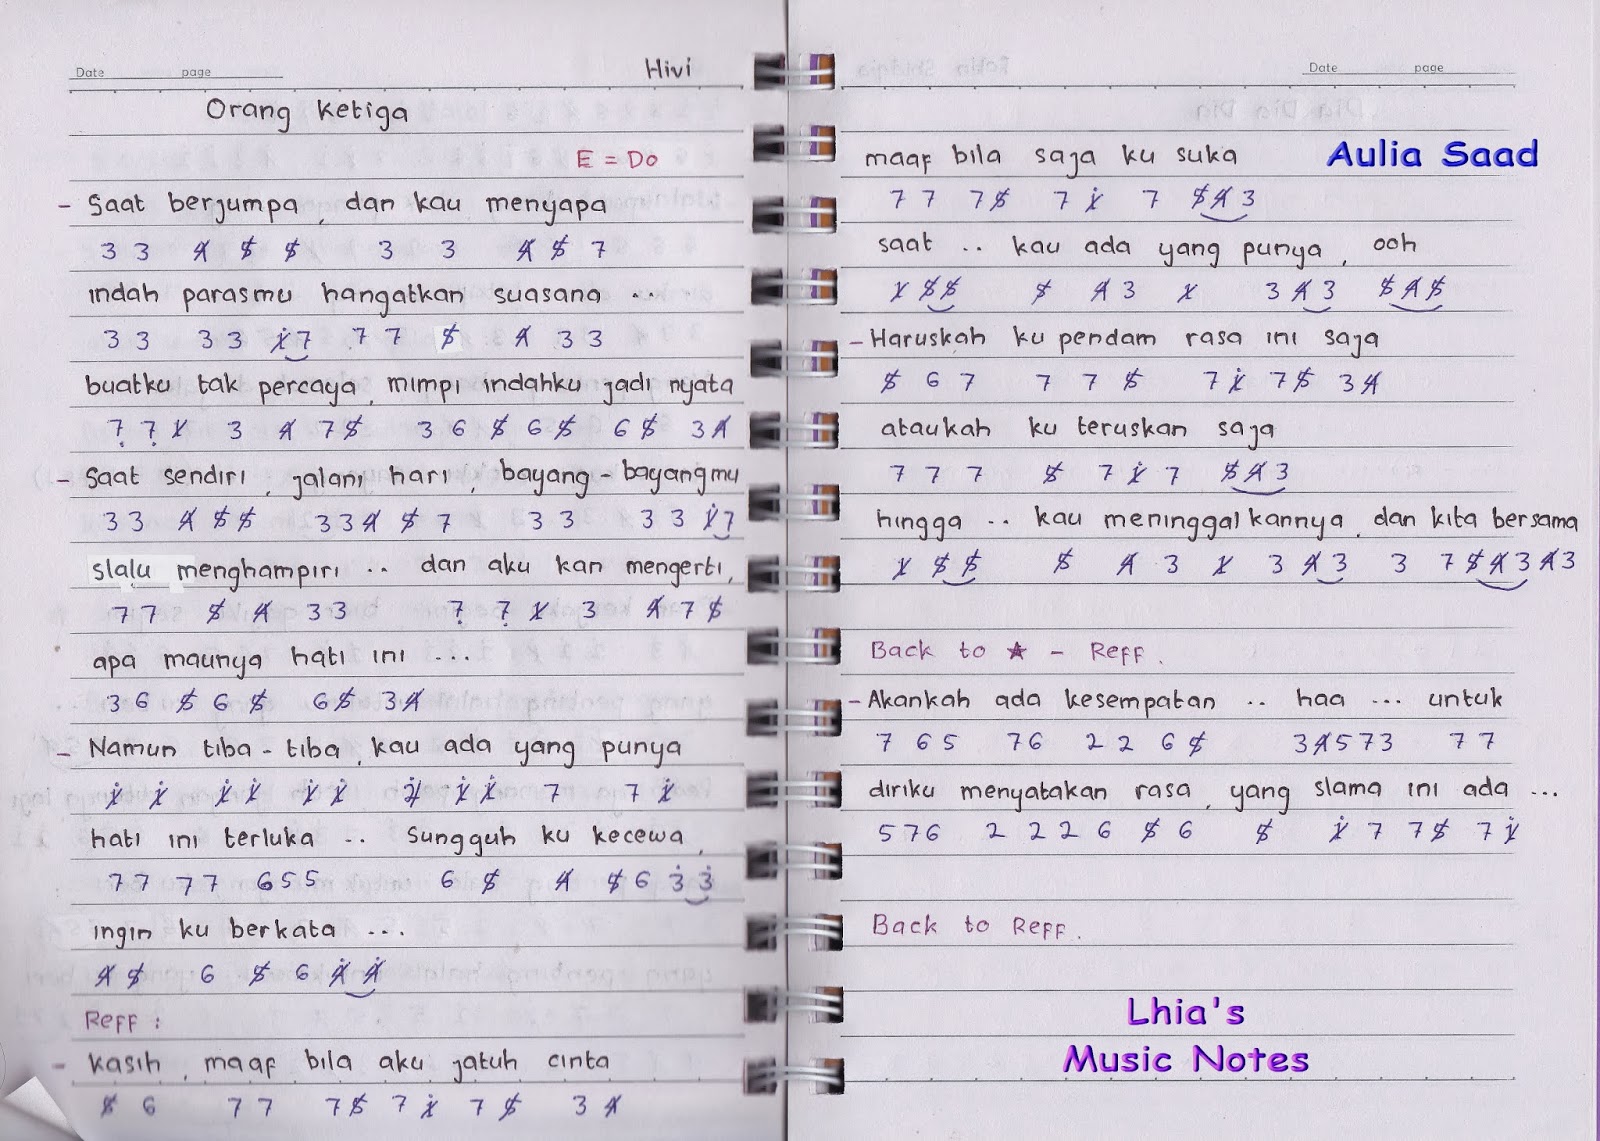 Date page
Hivi
Orang Ketiga
E = Do
- Saat berjumpa, dan kau menyapa
3 3 4̸ 5̸ 5̸ 3 3 4̸ 5̸ 7
indah parasmu hangatkan suasana ...
3 3 3 3 1̸̇ 7 7 7 5̸ 4̸ 3 3
buatku tak percaya, mimpi indahku jadi nyata
7̣ 7̣ 1̸ 3 4̸ 7 5̸ 3 6 5̸ 6 5̸ 6 5̸ 3 4̸
- Saat sendiri, jalani hari, bayang - bayangmu
3 3 4̸ 5̸ 5̸ 3 3 4̸ 5̸ 7 3 3 3 3 1̸̇ 7
slalu menghampiri .. dan aku kan mengerti,
7 7 5̸ 4̸ 3 3 7̣ 7̣ 1̸ 3 4̸ 7 5̸
apa maunya hati ini ...
3 6 5̸ 6 5̸ 6 5̸ 3 4̸
- Namun tiba - tiba, kau ada yang punya
1̸̇ 1̸̇ 1̸̇ 1̸̇ 1̸̇ 1̸̇ 2̸̇ 1̸̇ 1̸̇ 7 7 1̸̇
hati ini terluka .. sungguh ku kecewa,
7 7 7 7 6 5 5 6 5̸ 4̸ 5̸ 6 3̇ 3̇
ingin ku berkata ...
4̸ 5̸ 6 5̸ 6 4̸̇ 4̸̇
Reff :
- Kasih, maaf bila aku jatuh cinta
5̸ 6 7 7 7 5̸ 7 1̸̇ 7 5̸ 3 4̸
Date page
maaf bila saja ku suka
Aulia Saad
7 7 7 5̸ 7 1̸̇ 7 5̸ 4̸ 3
saat .. kau ada yang punya, ooh
1̸ 5̸ 5̸ 5̸ 4̸ 3 1̸ 3 4̸ 3 5̸ 4̸ 5̸
- Haruskah ku pendam rasa ini saja
5̸ 6 7 7 7 5̸ 7 1̸̇ 7 5̸ 3 4̸
ataukah ku teruskan saja
7 7 7 5̸ 7 1̸̇ 7 5̸ 4̸ 3
hingga .. kau meninggalkannya, dan kita bersama
1̸ 5̸ 5̸ 5̸ 4̸ 3 1̸ 3 4̸ 3 3 7 5̸ 4̸ 3 4̸ 3
Back to ★ - Reff.
- Akankah ada kesempatan .. haa ... untuk
7 6 5 7 6 2 2 6 5̸ 3 4̸ 5 7 3 7 7
diriku menyatakan rasa, yang slama ini ada ...
5 7 6 2 2 2 6 5̸ 6 5̸ 1̸̇ 7 7 5̸ 7 1̸̇
Back to Reff.
Lhia's
Music Notes